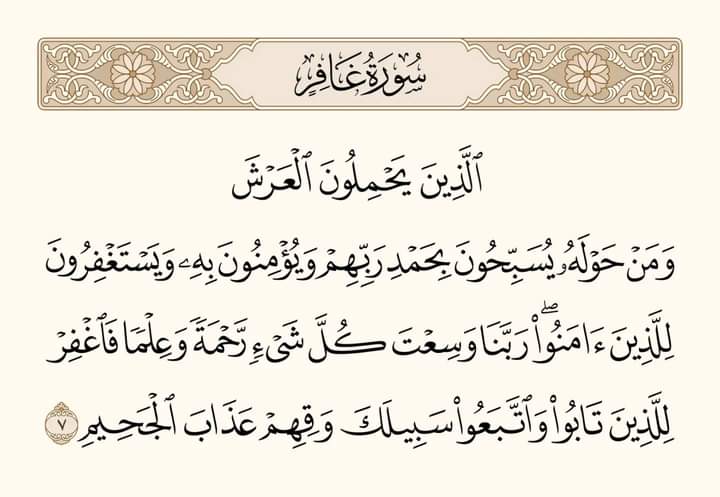 سُورَةُ غَافِرٍ
ٱلَّذِينَ يَحْمِلُونَ ٱلْعَرْشَ
وَمَنْ حَوْلَهُۥ يُسَبِّحُونَ بِحَمْدِ رَبِّهِمْ وَيُؤْمِنُونَ بِهِۦ وَيَسْتَغْفِرُونَ
لِلَّذِينَ ءَامَنُوا۟ۖ رَبَّنَا وَسِعْتَ كُلَّ شَىْءٍ رَّحْمَةً وَعِلْمًا فَٱغْفِرْ
لِلَّذِينَ تَابُوا۟ وَٱتَّبَعُوا۟ سَبِيلَكَ وَقِهِمْ عَذَابَ ٱلْجَحِيمِ ٧